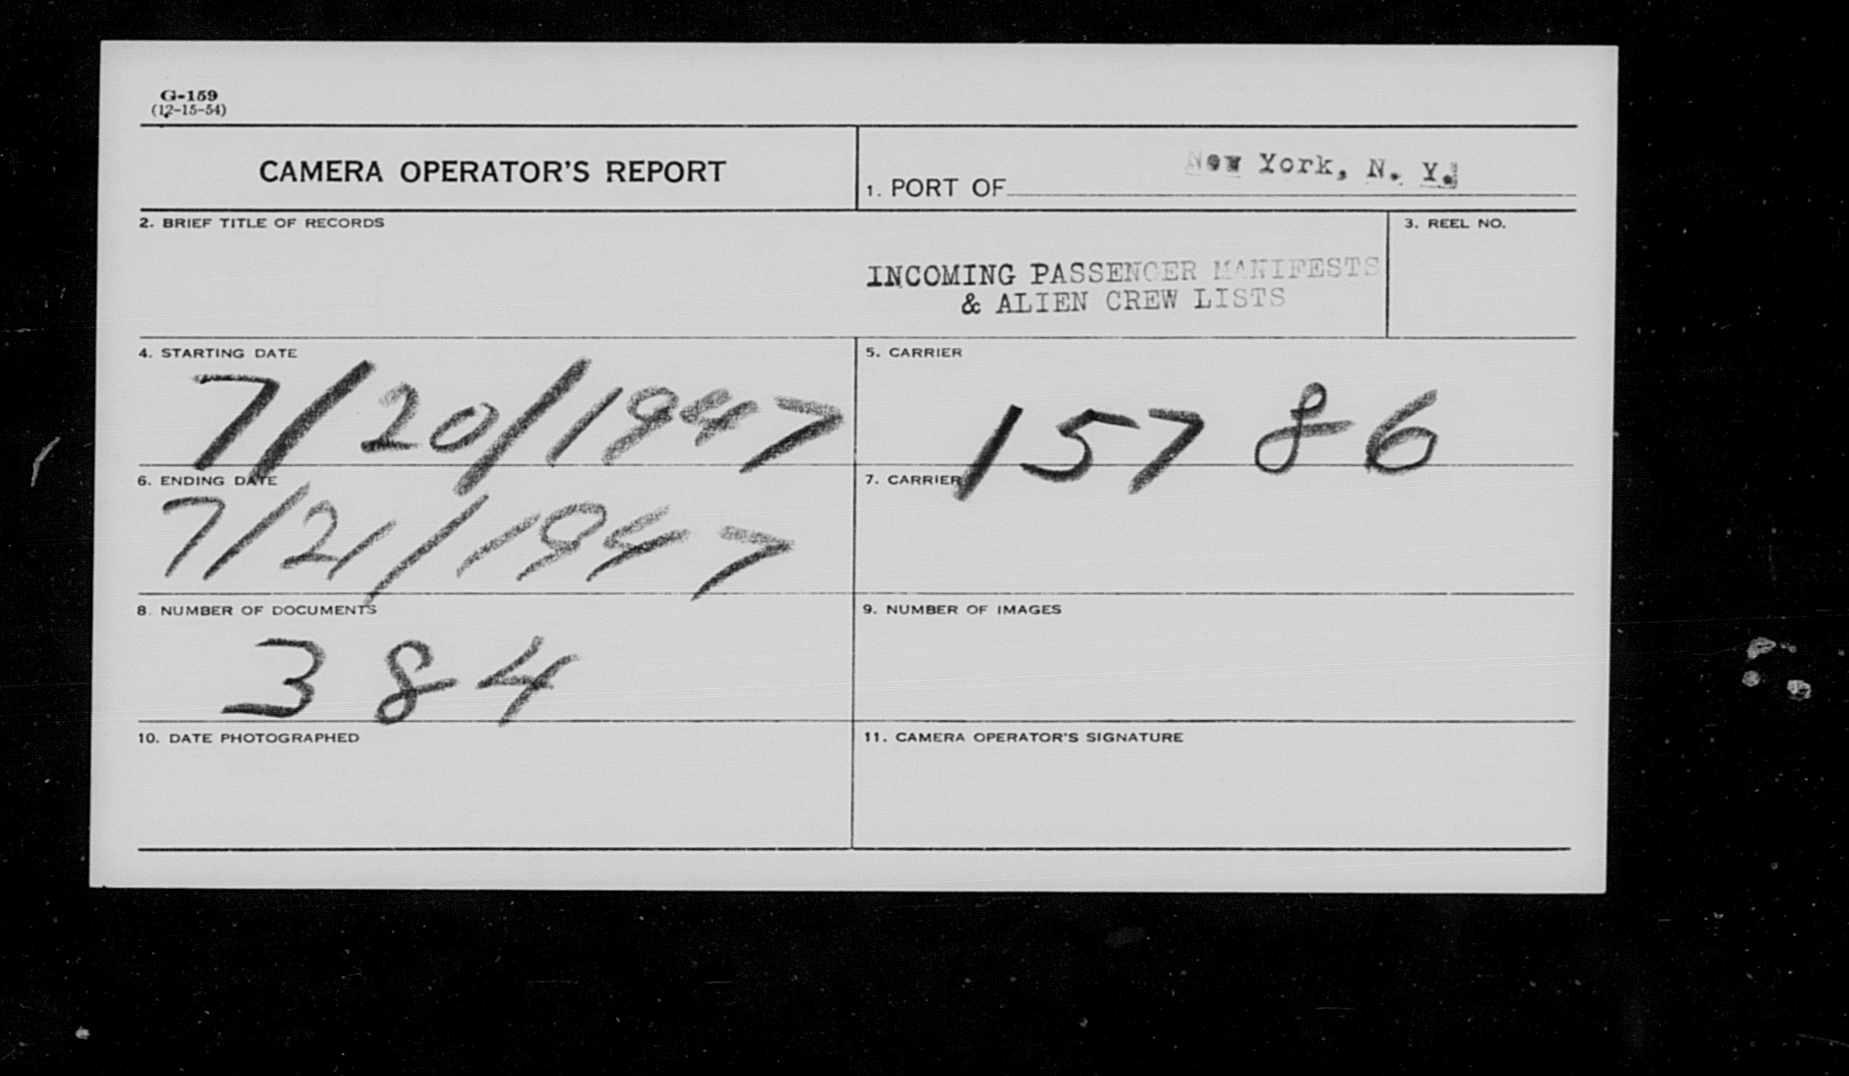 G-159
(12-15-54)
CAMERA OPERATOR'S REPORT
1. PORT OF New York, N. Y.
2. BRIEF TITLE OF RECORDS
INCOMING PASSENGER MANIFESTS
& ALIEN CREW LISTS
3. REEL NO.
4. STARTING DATE
7/20/1947
5. CARRIER
157 86
6. ENDING DATE
7/21/1947
7. CARRIER
8. NUMBER OF DOCUMENTS
384
9. NUMBER OF IMAGES
10. DATE PHOTOGRAPHED
11. CAMERA OPERATOR'S SIGNATURE